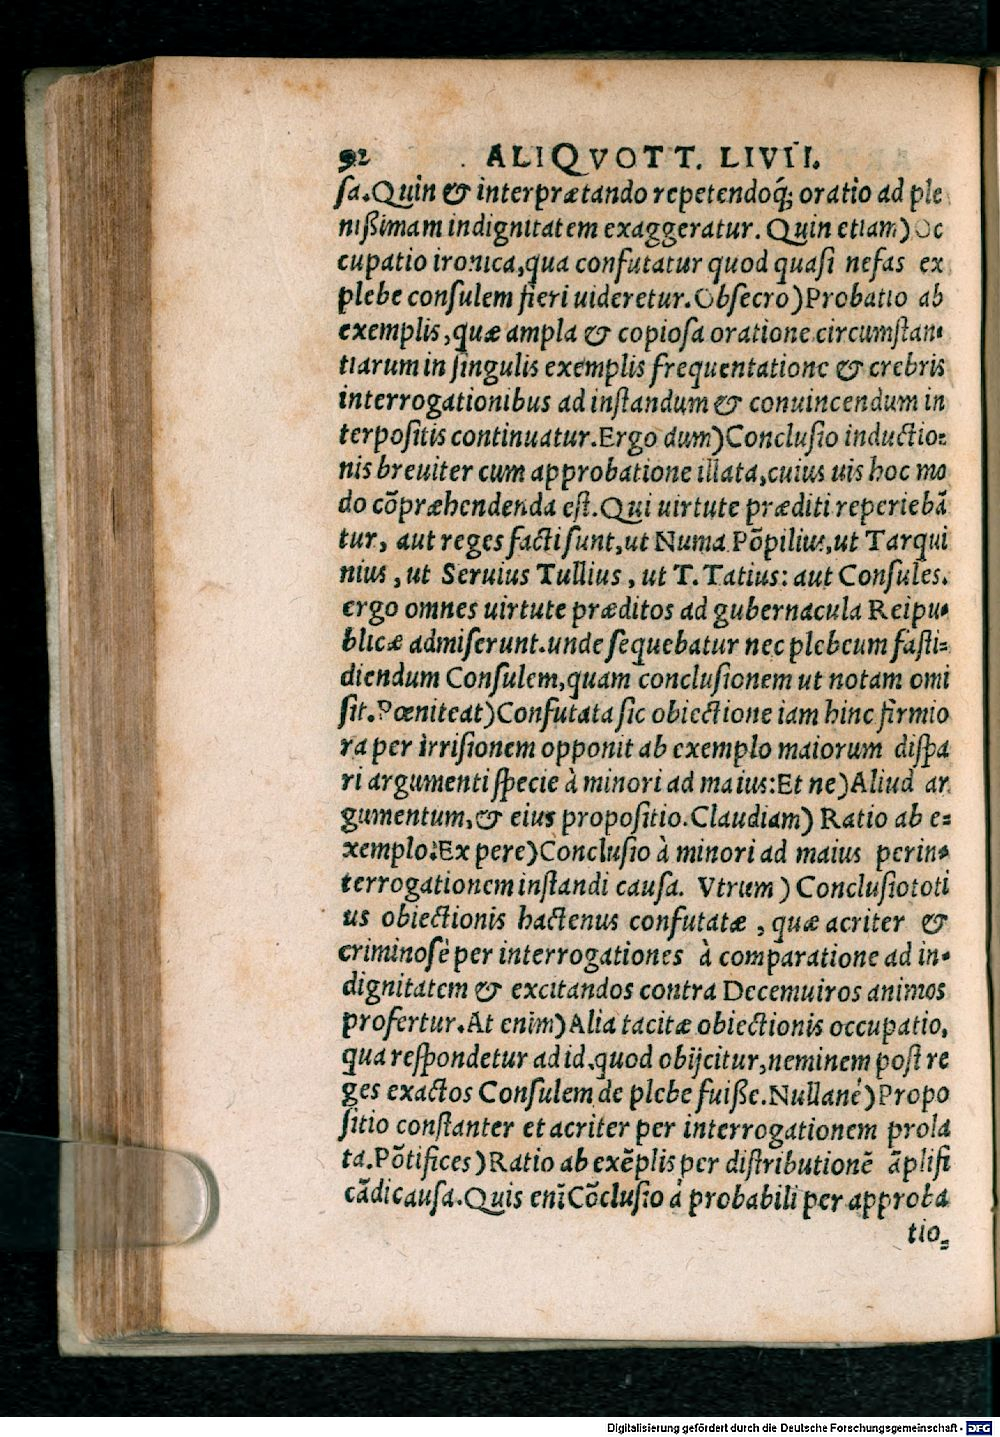 92 ALIQVOT T. LIVII.
sa. Quin & interprætando repetendoq́; oratio ad ple
nißimam indignitatem exaggeratur. Quin etiam) Oc
cupatio ironica, qua confutatur quod quasi nefas ex
plebe consulem fieri uideretur. Obsecro) Probatio ab
exemplis, quæ ampla & copiosa oratione circumstan-
tiarum in singulis exemplis frequentatione & crebris
interrogationibus ad instandum & conuincendum in
terpositis continuatur. Ergo dum) Conclusio inductio-
nis breuiter cum approbatione illata, cuius uis hoc mo
do cõpræhendenda est. Qui uirtute præditi reperiebã
tur, aut reges facti sunt, ut Numa Põpilius, ut Tarqui
nius, ut Seruius Tullius, ut T. Tatius: aut Consules.
ergo omnes uirtute præditos ad gubernacula Reipu-
blicæ admiserunt. unde sequebatur nec plebeum fasti-
diendum Consulem, quam conclusionem ut notam omi
sit. Pœniteat) Confutata sic obiectione iam hinc firmio
ra per irrisionem opponit ab exemplo maiorum dispa
ri argumenti specie à minori ad maius: Et ne) Aliud ar
gumentum, & eius propositio. Claudiam) Ratio ab e-
xemplo: Ex pere) Conclusio à minori ad maius per in-
terrogationem instandi causa. Vtrum) Conclusio toti
us obiectionis hactenus confutatæ, quæ acriter &
criminosè per interrogationes à comparatione ad in-
dignitatem & excitandos contra Decemuiros animos
profertur. At enim) Alia tacitæ obiectionis occupatio,
qua respondetur ad id, quod obijcitur, neminem post re
ges exactos Consulem de plebe fuiße. Nullané) Propo
sitio constanter et acriter per interrogationem prola
ta. Põtifices) Ratio ab exẽplis per distributionẽ ãplifi
cãdi causa. Quis enĩ Cõclusio à probabili per approba
tio-
Digitalisierung gefördert durch die Deutsche Forschungsgemeinschaft - DFG